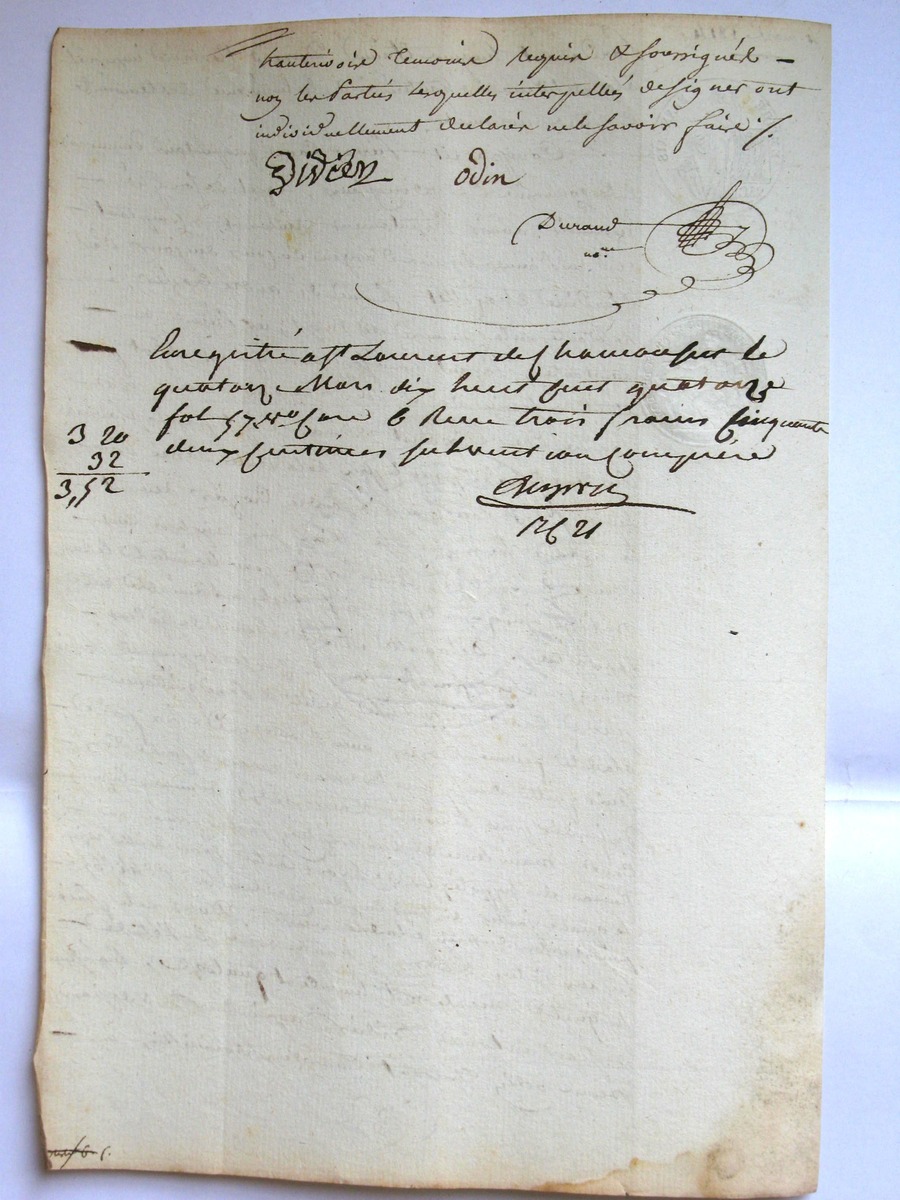 temoins requis & soussignés
non les Parties lesquelles interpellées de signer ont
individuellement declarés ne le savoir faire ./.
Didier odin
Durand
nore
Enregistré a st Laurent de chamousset le
quatorze Mars dix huit cent quatorze
fol 57 vo Case 6 Recu trois francs cinquante
deux centimes subvention comprise
3 20
32
3,52